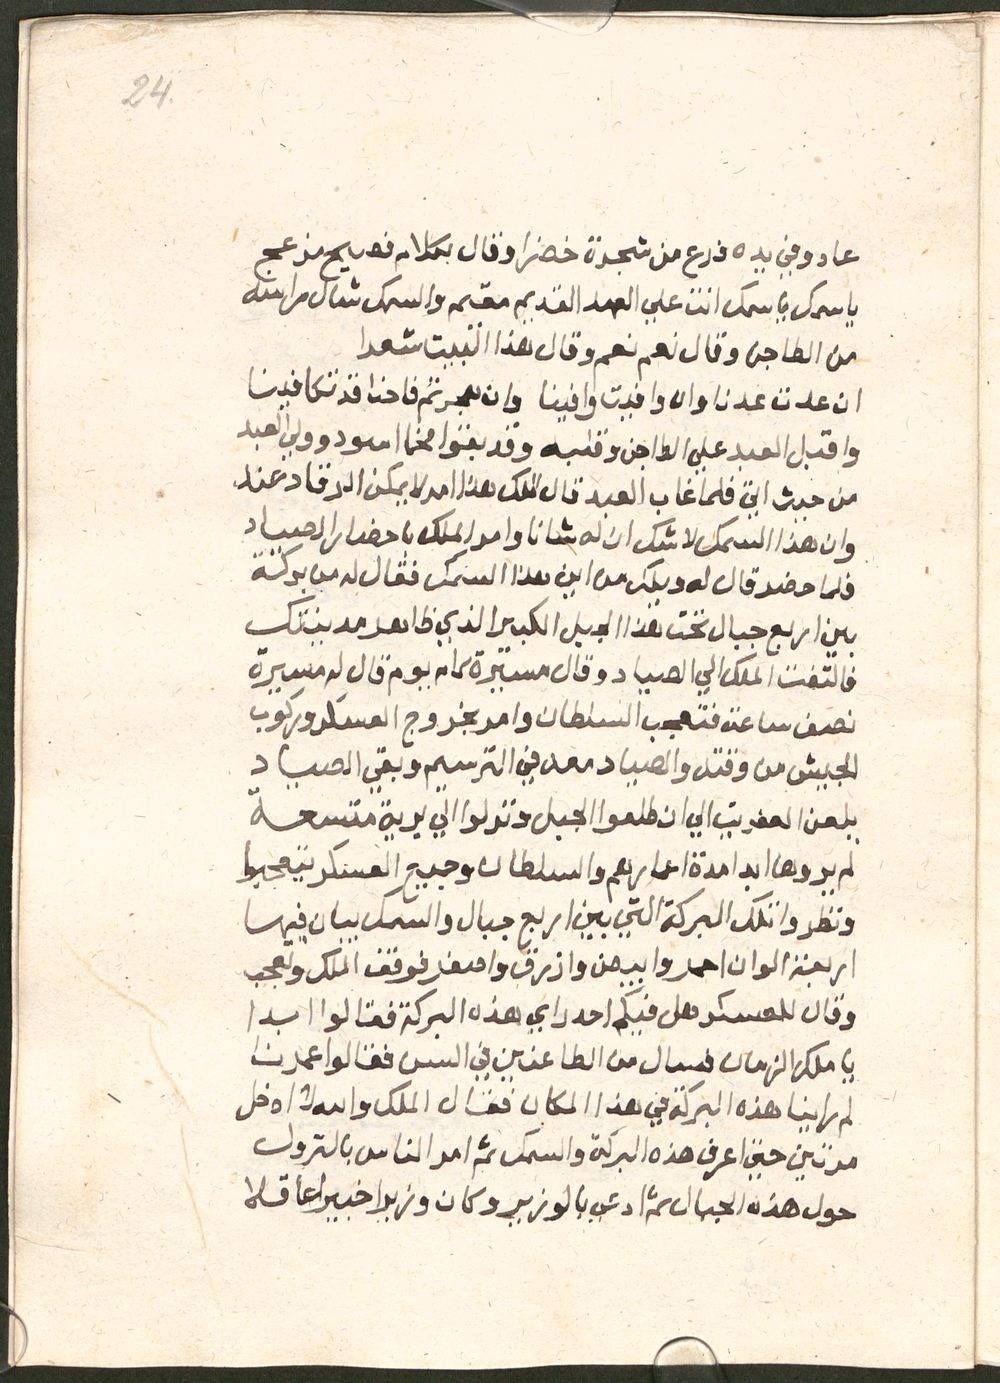 24.
عاد وفي يده فرع من شجرة خضرا وقال بكلام فصيح مزعج
يا سمك يا سمك انت علي العهد القديم مقيم والسمك شال راسه
من الطاجن وقال نعم نعم وقال هذا البيت شعرا
ان عدت عدنا وان وافيت وافينا وان هجرتم فاحنا قد تكافينا
واقبل العبد علي الطاجن وقلبه وقد بقوا فحما اسود وولي العبد
من حيث اتي فلما غاب العبد قال الملك هذا امر لا يمكن الرقاد عنه
وان هذا السمك لا شك ان له شانا وامر الملك باحضار الصياد
فلما حضر قال له ويلك من اين هذا السمك فقال له من بركة
بين اربع جبال تحت هذا الجبل الكبير الذي ظاهر مدينتك
فالتفت الملك الي الصياد وقال مسيرة كام يوم قال له مسيرة
نصف ساعة فتعجب السلطان وامر بخروج العسكر وركوب
الجيش من وقته والصياد معه في الترسيم وبقي الصياد
يلعن العفريت الي ان طلعوا الجبل ونزلوا الي برية متسعة
لم يروها ابدا مدة اعمارهم والسلطان وجميع العسكر يتعجبوا
ونظروا تلك البركة التي بين اربع جبال والسمك يبان فيها
اربعة الوان احمر وابيض وازرق واصفر فوقف الملك وتعجب
وقال للعسكر هل فيكم احد راي هذه البركة فقالوا ابدا
يا ملك الزمان فسال من الطاعنين في السن فقالوا عمرنا
لم راينا هذه البركة في هذا المكان فقال الملك والله لا ادخل
مدينتي حتي اعرف هذه البركة والسمك ثم امر الناس بالنزول
حول هذه الجبال ثم ادعي بالوزير وكان وزيرا خبيرا عاقلا